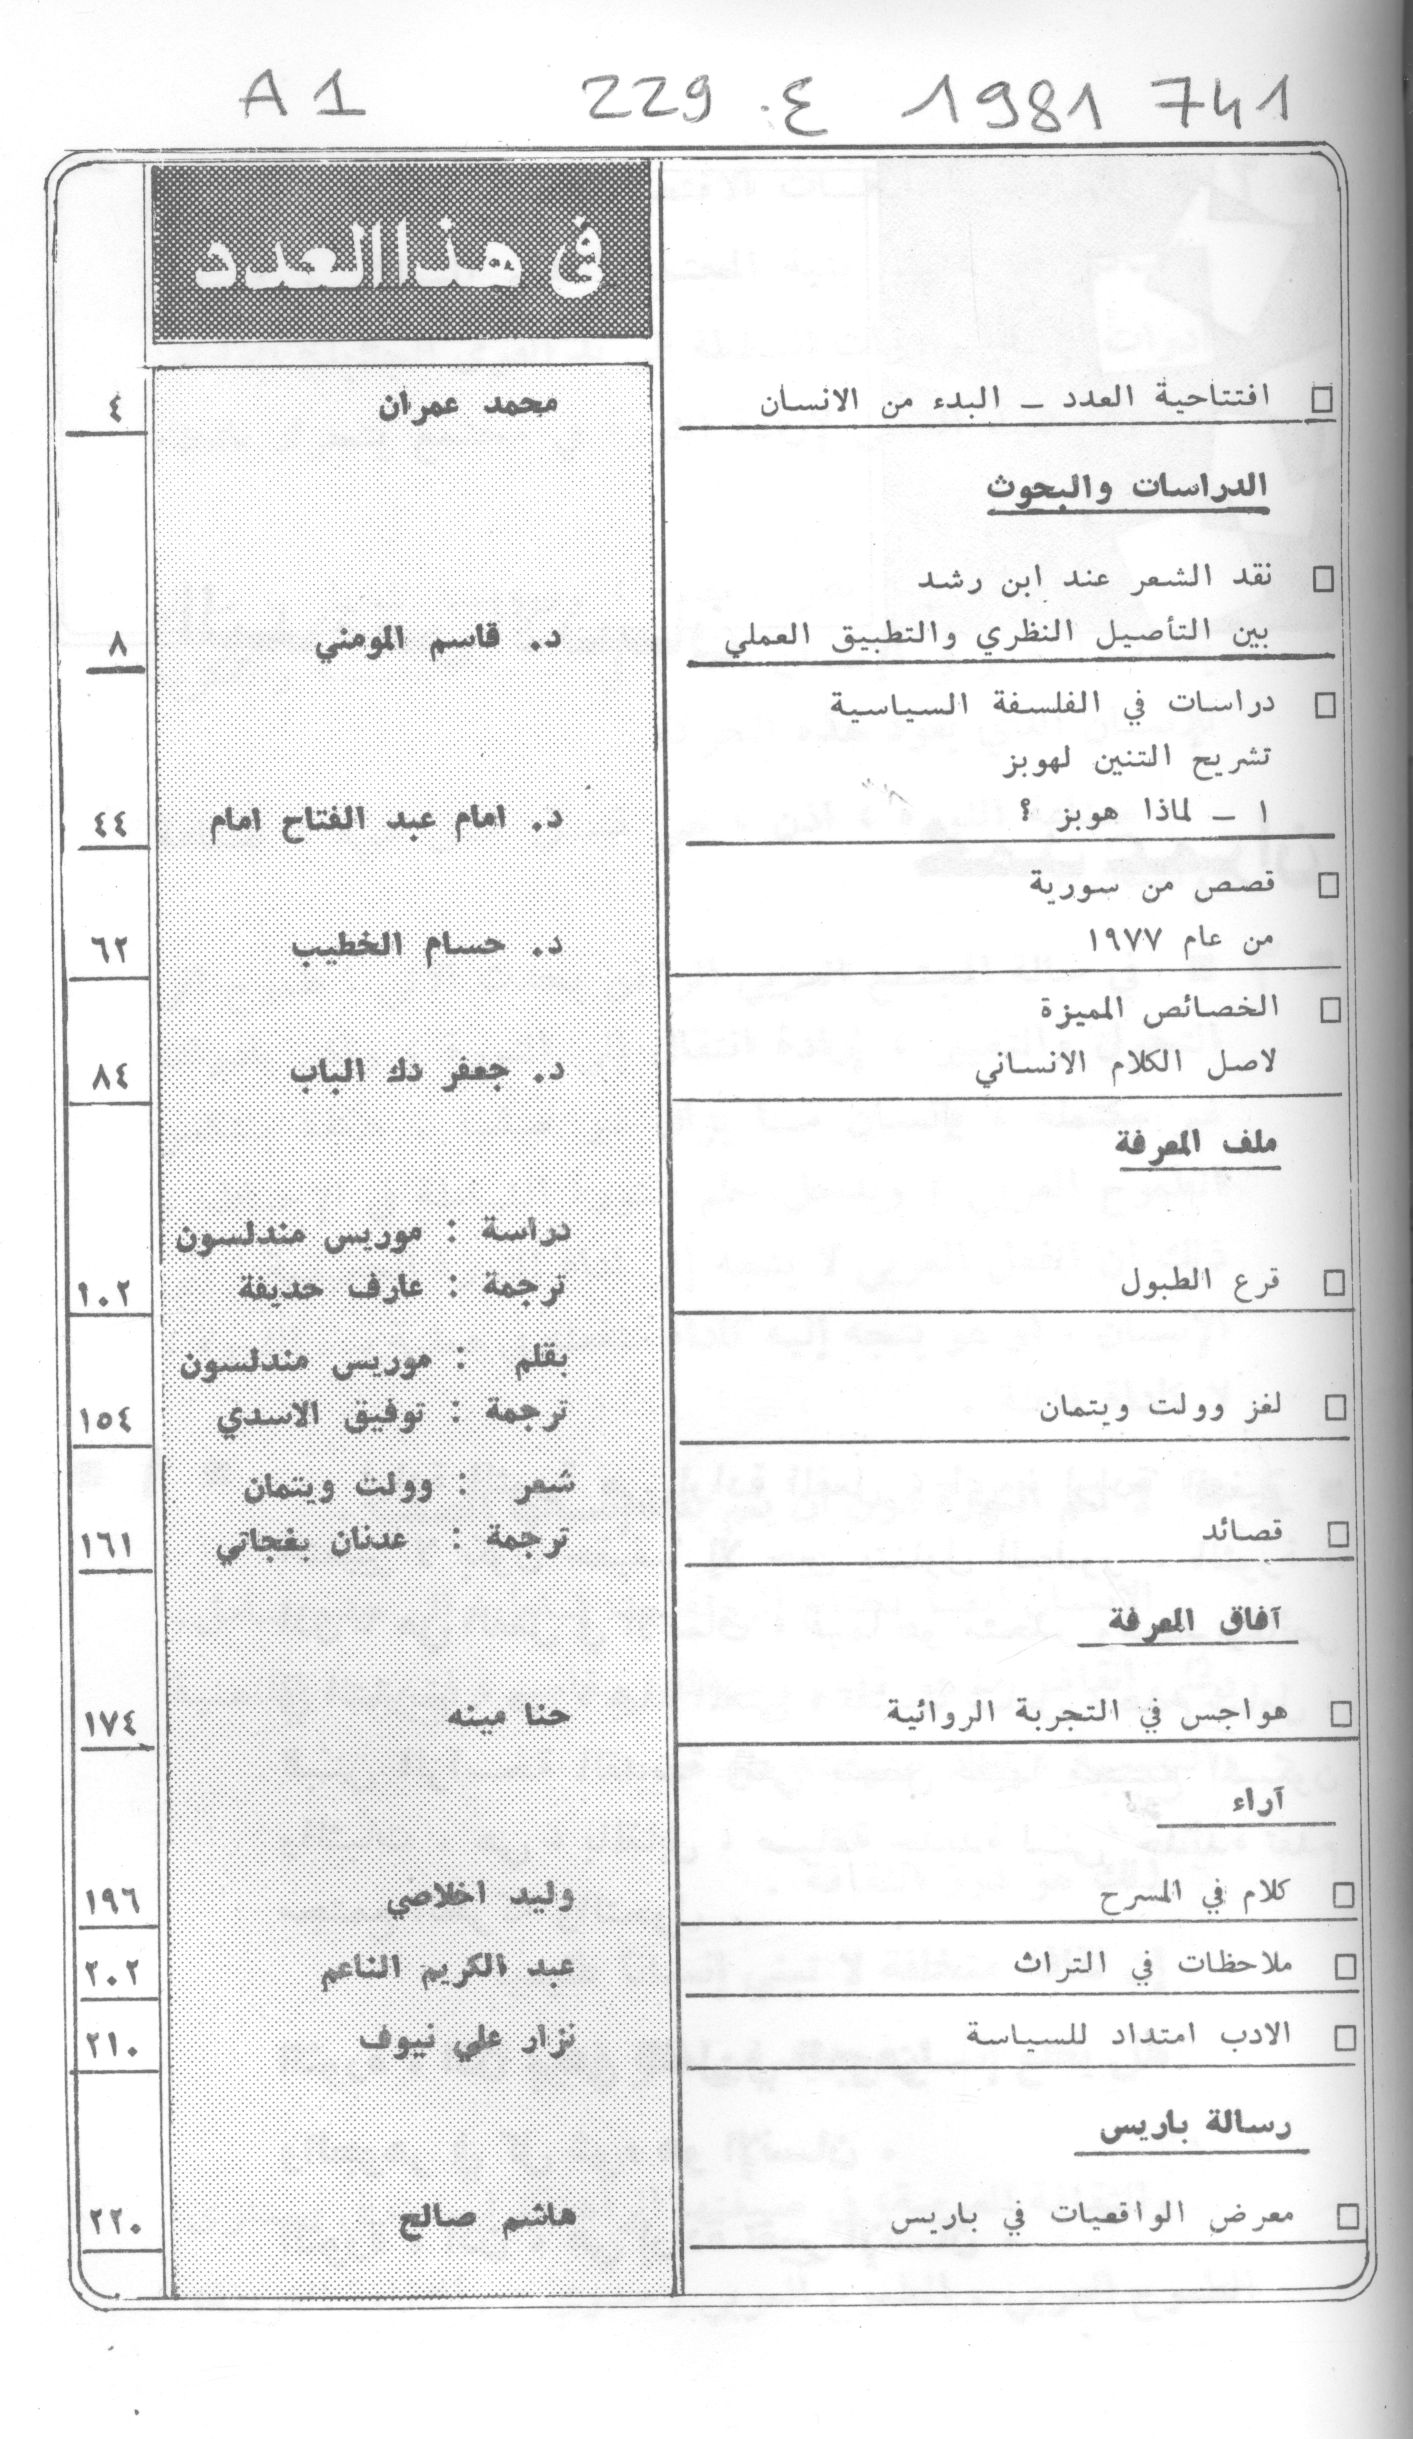 A1 229 ع: 1981 741
في هذا العدد
□ افتتاحية العدد ــ البدء من الانسان محمد عمران ٤
الدراسات والبحوث
□ نقد الشعر عند ابن رشد
بين التأصيل النظري والتطبيق العملي د. قاسم المومني ٨
□ دراسات في الفلسفة السياسية
تشريح التنين لهوبز
١ ــ لماذا هوبز ؟ د. امام عبد الفتاح امام ٤٤
□ قصص من سورية
من عام ١٩٧٧ د. حسام الخطيب ٦٢
□ الخصائص المميزة
لاصل الكلام الانساني د. جعفر دك الباب ٨٤
ملف المعرفة
دراسة : موريس مندلسون
□ قرع الطبول ترجمة : عارف حديفة ١٠٢
بقلم : موريس مندلسون
□ لغز وولت ويتمان ترجمة : توفيق الاسدي ١٥٤
شعر : وولت ويتمان
□ قصائد ترجمة : عدنان بغجاتي ١٦١
آفاق المعرفة
□ هواجس في التجربة الروائية حنا مينه ١٧٤
آراء
□ كلام في المسرح وليد اخلاصي ١٩٦
□ ملاحظات في التراث عبد الكريم الناعم ٢٠٢
□ الادب امتداد للسياسة نزار علي نيوف ٢١٠
رسالة باريس
□ معرض الواقعيات في باريس هاشم صالح ٢٢٠